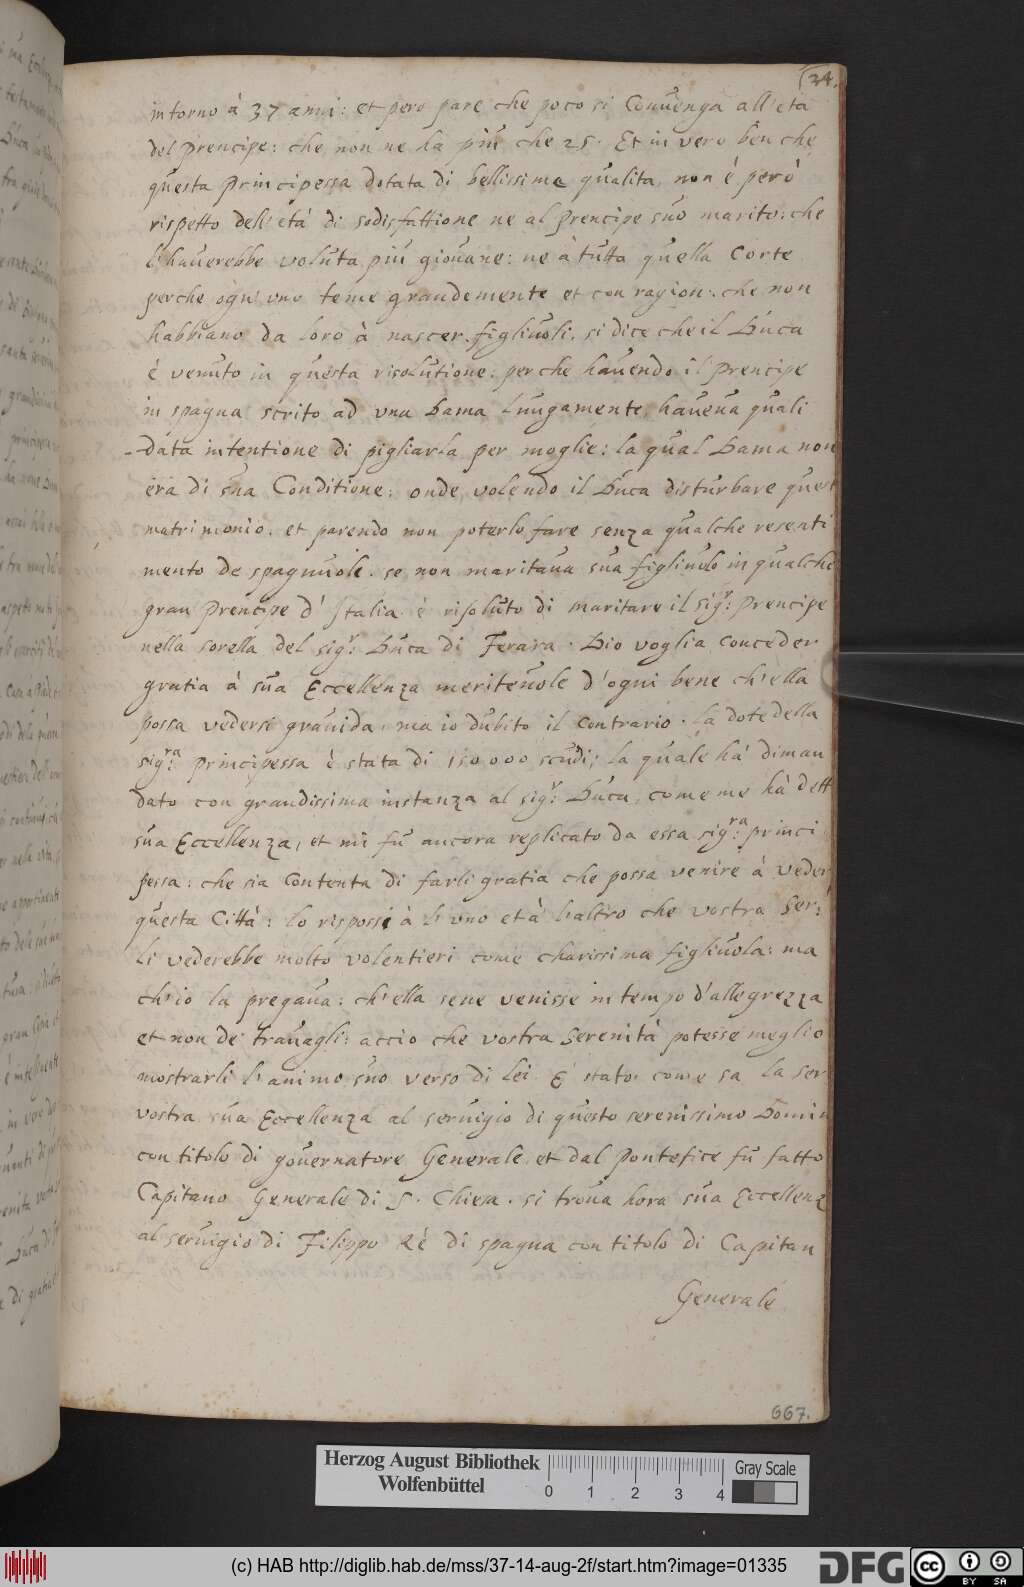 (24.
intorno à 37 anni: et pero pare che poco si Conuenga all'età
del Prencipe: che non ne ha più che 25. Et in vero ben che
questa Principessa dotata di bellissime qualita, non è però
rispetto dell'età di sodisfattione ne al Prencipe suo marito: che
l'hauerebbe voluta più giouane: ne à tutta quella Corte
perche ogn'uno teme grandemente et con ragion: che non
habbiano da loro à nascer figliuoli, si dice che il Duca
è venuto in questa risolutione: perche hauendo il Prencipe
in spagna scrito ad una Dama lungamente, haueua quasi
data intentione di pigliarla per moglie: la qual Dama non
era di sua Conditione: onde volendo il Duca disturbare quest
matrimonio, et parendo non poterlo fare senza qualche resenti
mento de spagnuole. se non maritaua sua figliuolo in qualche
gran Prencipe d'Italia è risoluto di maritare il sigr: Prencipe
nella sorella del sigr: Duca di Ferara. Dio voglia conceder
gratia à sua Eccellenza meriteuole d'ogni bene ch'ella
possa vedersi grauida, ma io dubito il contrario. La dote della
sigra: Principessa è stata di 150000 scudi; la quale hà diman
dato con grandissima instanza al sigr: Duca, come me hà dett
sua Eccellenza, et mi fu ancora replicato da essa sigra: Princi
pessa: che sia Contenta di farli gratia che possa venire à veder
questa Città: Io risposi à l'uno et à l'altro che vostra Ser:
li vederebbe molto volentieri come charissima figliuola: ma
ch'io la pregaua: ch'ella sene venisse in tempo d'allegrezza
et non de trauagli: accio che vostra Serenità potesse meglio
mostrarli l'animo suo verso di lei. E stato come sa la ser
vostra sua Eccellenza al seruigio di questo serenissimo Domin
con titolo di gouernatore Generale, et dal Pontefice fu fatto
Capitano Generale di S. Chiesa. si troua hora sua Eccellenz
al seruigio di Filippo Rè di spagna con titolo di Capitan
Generale
667.
Herzog August Bibliothek
Wolfenbüttel
0 1 2 3 4
Gray Scale
(c) HAB http://diglib.hab.de/mss/37-14-aug-2f/start.htm?image=01335
DFG
cc BY SA